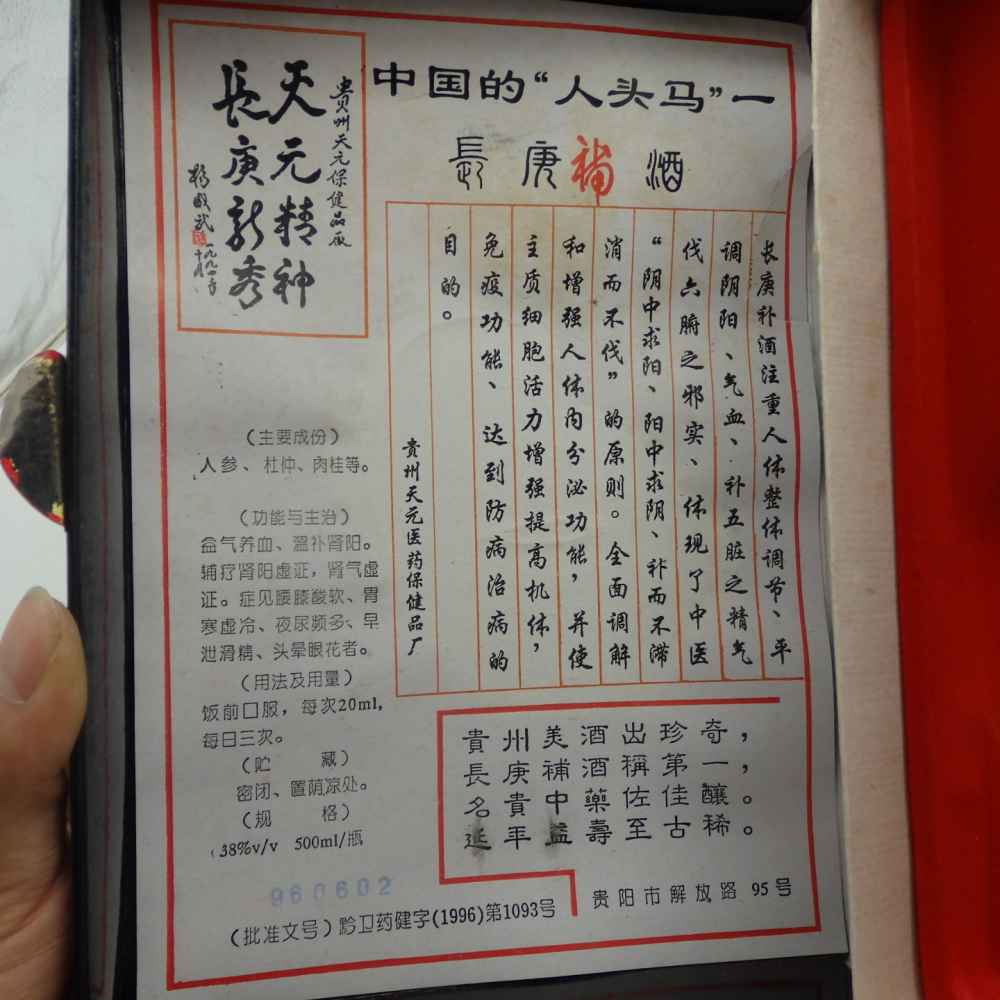 貴州天元保健品厰
天元精神
長庚新秀
杨成武
中国的“人头马”一
長庚補酒
长庚补酒注重人体整体调节、平
调阴阳、气血、补五脏之精气
伐六腑之邪实、体现了中医
“阴中求阳、阳中求阴、补而不滞
消而不伐”的原则。全面调解
和增强人体内分泌功能，并使
主质细胞活力增强提高机体，
免疫功能、达到防病治病的
目的。
贵州天元医药保健品厂
（主要成份）
人参、杜仲、肉桂等。
（功能与主治）
益气养血、温补肾阳。
辅疗肾阳虚证，肾气虚
证。症见腰膝酸软、胃
寒虚冷、夜尿频多、早
泄滑精、头晕眼花者。
（用法及用量）
饭前口服，每次20ml，
每日三次。
（贮　　藏）
密闭、置荫凉处。
（规　　格）
38%v/v 500ml/瓶
960602
貴州美酒出珍奇，
長庚補酒稱第一，
名貴中藥佐佳釀。
延年益壽至古稀。
（批准文号）黔卫药健字(1996)第1093号
贵阳市解放路 95号